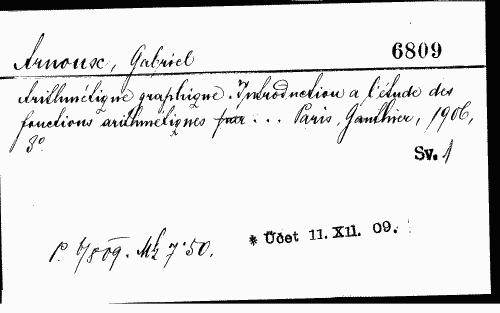 Arnoux, Gabriel 6809
Arithmétique graphique. Introduction a l'étude des
fonctions arithmétiques par ... Paris, Gauthier, 1906,
8°
Sv. 1
* Účet 11. XII. 09.
P. 6/8 09. Mk 7·50.